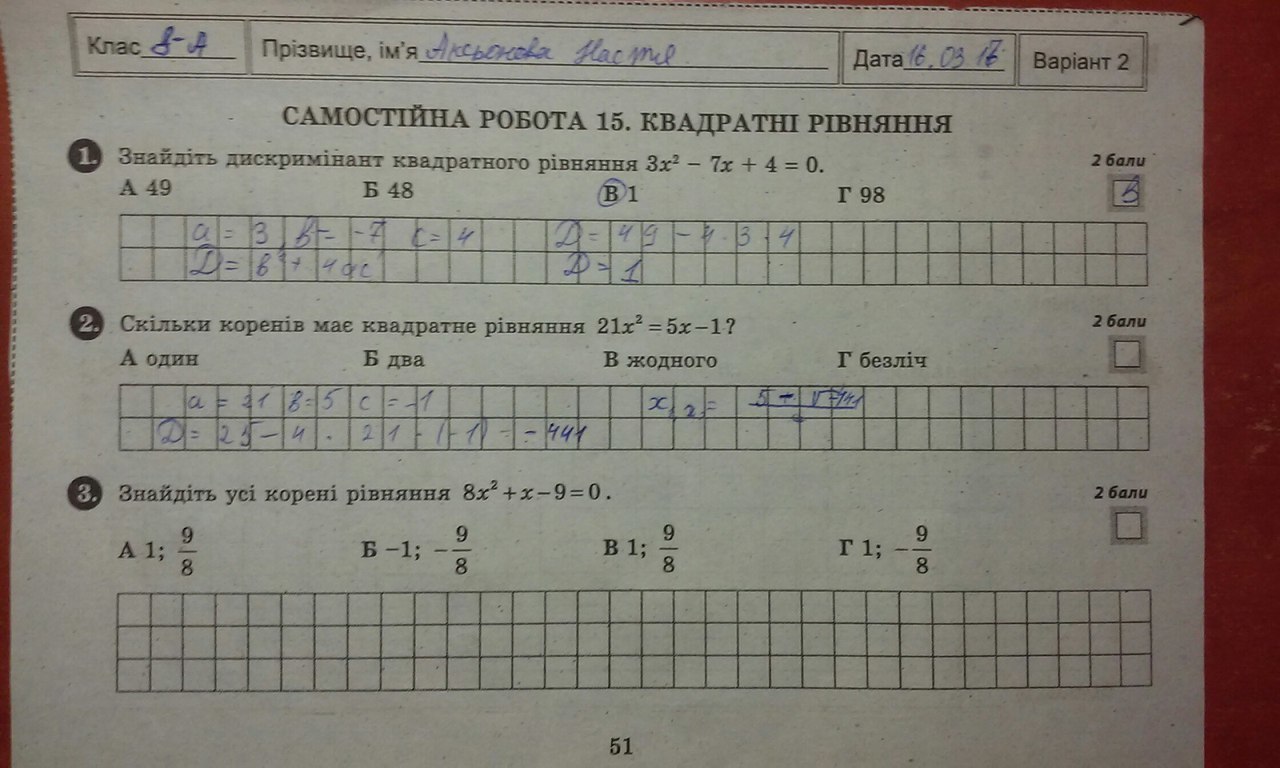 Клас 8-А Прізвище, ім'я Аксьонова Настя Дата 16.03 17 Варіант 2
САМОСТІЙНА РОБОТА 15. КВАДРАТНІ РІВНЯННЯ
1. Знайдіть дискримінант квадратного рівняння 3x² − 7x + 4 = 0. 2 бали
А 49 Б 48 В 1 Г 98 В
a = 3, b = -7 c = 4 D = 49 - 4 · 3 · 4
D = b² + 4ac D = 1
2. Скільки коренів має квадратне рівняння 21x² = 5x − 1? 2 бали
А один Б два В жодного Г безліч
a = 21 b = 5 c = -1 x₁,₂ =
D = 25 - 4 · 21 · (-1) = -441
3. Знайдіть усі корені рівняння 8x² + x − 9 = 0. 2 бали
А 1; 9/8 Б −1; −9/8 В 1; 9/8 Г 1; −9/8
51